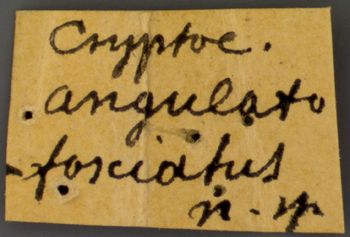 Cryptoc.
angulato
fasciatus
n. sp